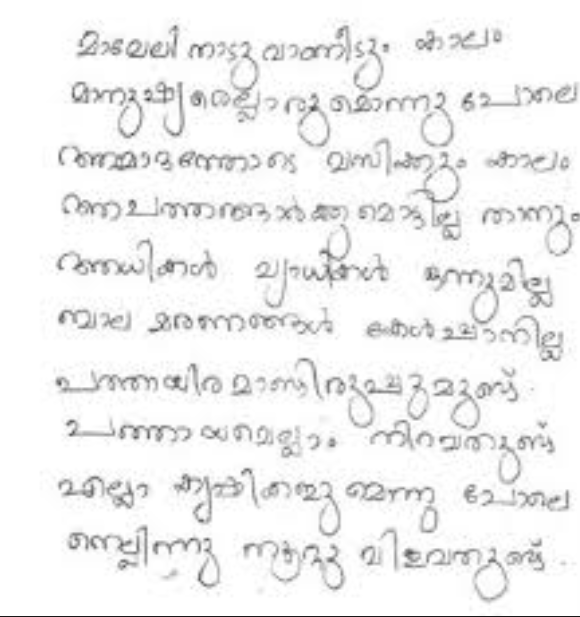 മാവേലി നാടു വാണീടും കാലം
മാനുഷ്യരെല്ലാരുമൊന്നു പോലെ
ആമോദത്തോടെ വസിക്കും കാലം
ആപത്തങ്ങാർക്കുമൊട്ടില്ല താനും
ആധികൾ വ്യാധികൾ ഒന്നുമില്ല
ബാല മരണങ്ങൾ കേൾപ്പാനില്ല
പത്തായിരമാണ്ടിരുപ്പുമുണ്ട്.
പത്തായമെല്ലാം നിറവതുണ്ട്
എല്ലാ കൃഷികളുമൊന്നു പോലെ
നെല്ലിന്നു നൂറു വിളവതുണ്ട്.